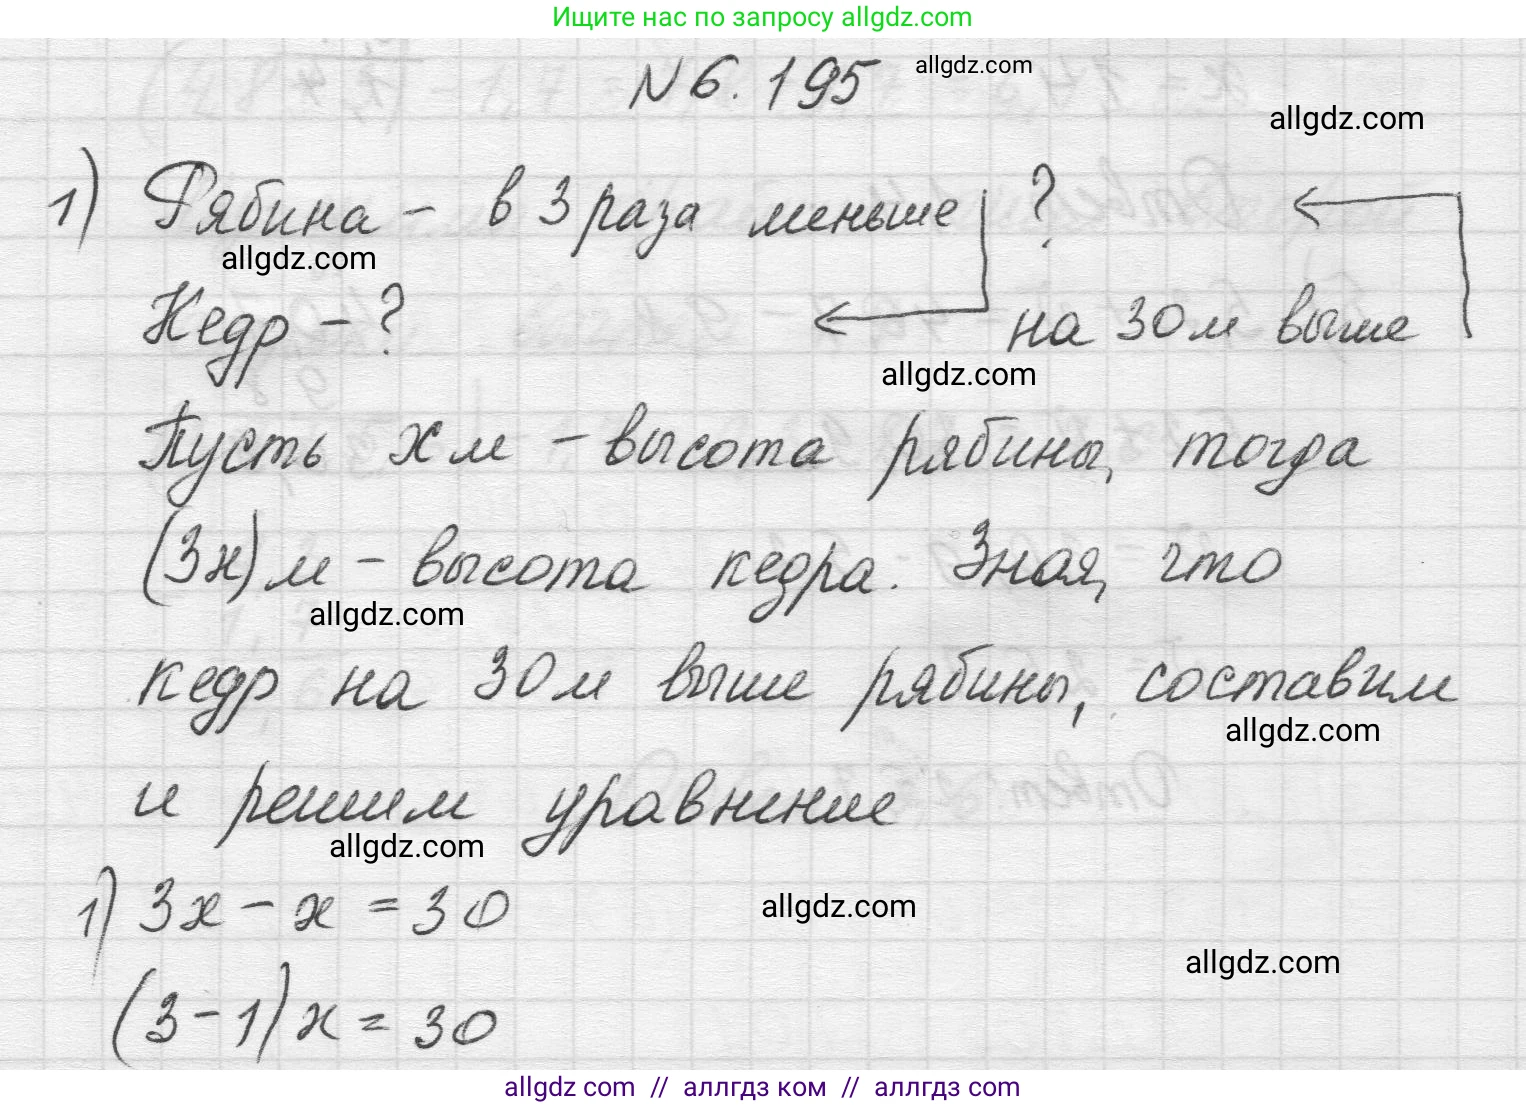 Ищите нас по запросу allgdz.com
N 6.195 allgdz.com
allgdz.com
1) Рябина – в 3 раза меньше ?
allgdz.com
Кедр – ? на 30 м выше
allgdz.com
Пусть х м – высота рябины, тогда
(3х) м – высота кедра. Зная, что
allgdz.com
кедр на 30 м выше рябины, составим
allgdz.com
и решим уравнение
allgdz.com
1) 3х – х = 30
allgdz.com
allgdz.com
(3 – 1) х = 30
allgdz com // аллгдз ком // аллгдз com